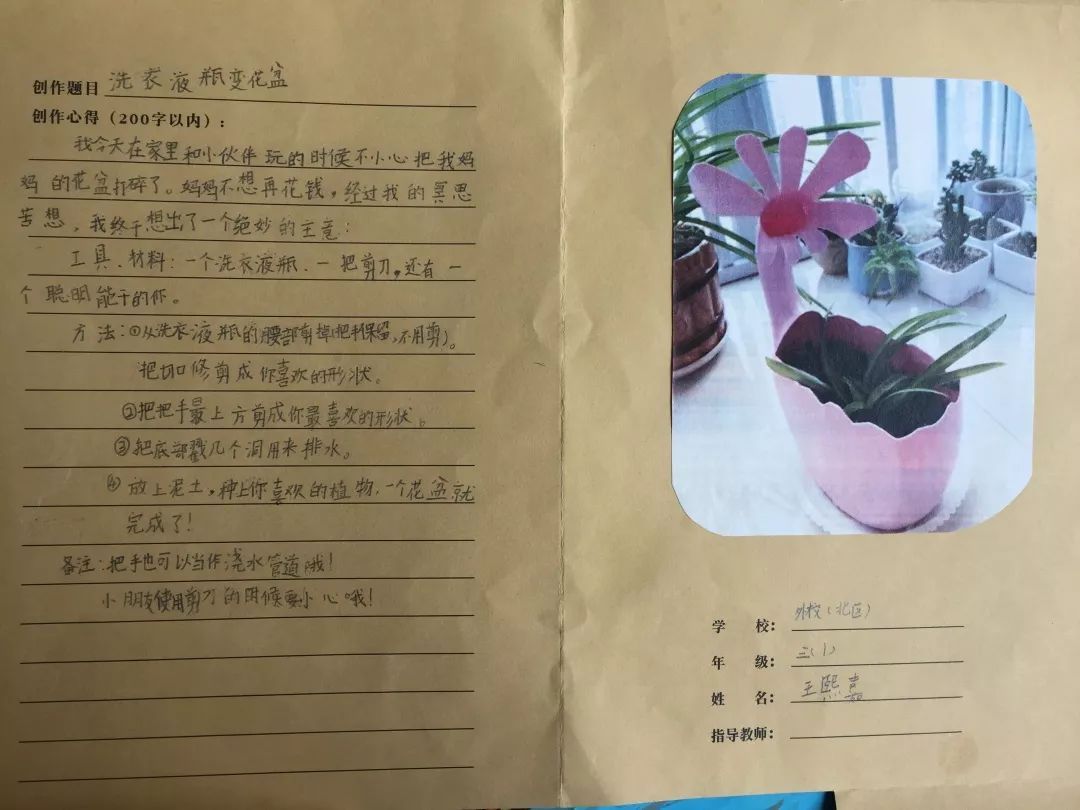 创作题目 洗衣液瓶变花盆
创作心得（200字以内）：
我今天在家里和小伙伴玩的时候不小心把我妈
妈的花盆打碎了。妈妈不想再花钱，经过我的冥思
苦想，我终于想出了一个绝妙的主意：
工具、材料：一个洗衣液瓶、一把剪刀，还有一
个聪明能干的你。
方法：①从洗衣液瓶的腰部剪掉（把手保留，不用剪）。
把切口修剪成你喜欢的形状。
②把把手最上方剪成你最喜欢的形状。
③把底部戳几个洞用来排水。
④放上泥土，种上你喜欢的植物，一个花盆就
完成了！
备注：把手也可以当作浇水管道哦！
小朋友使用剪刀的时候要小心哦！
学 校： 外校（北区）
年 级： 三（1）
姓 名： 王熙嘉
指导教师：